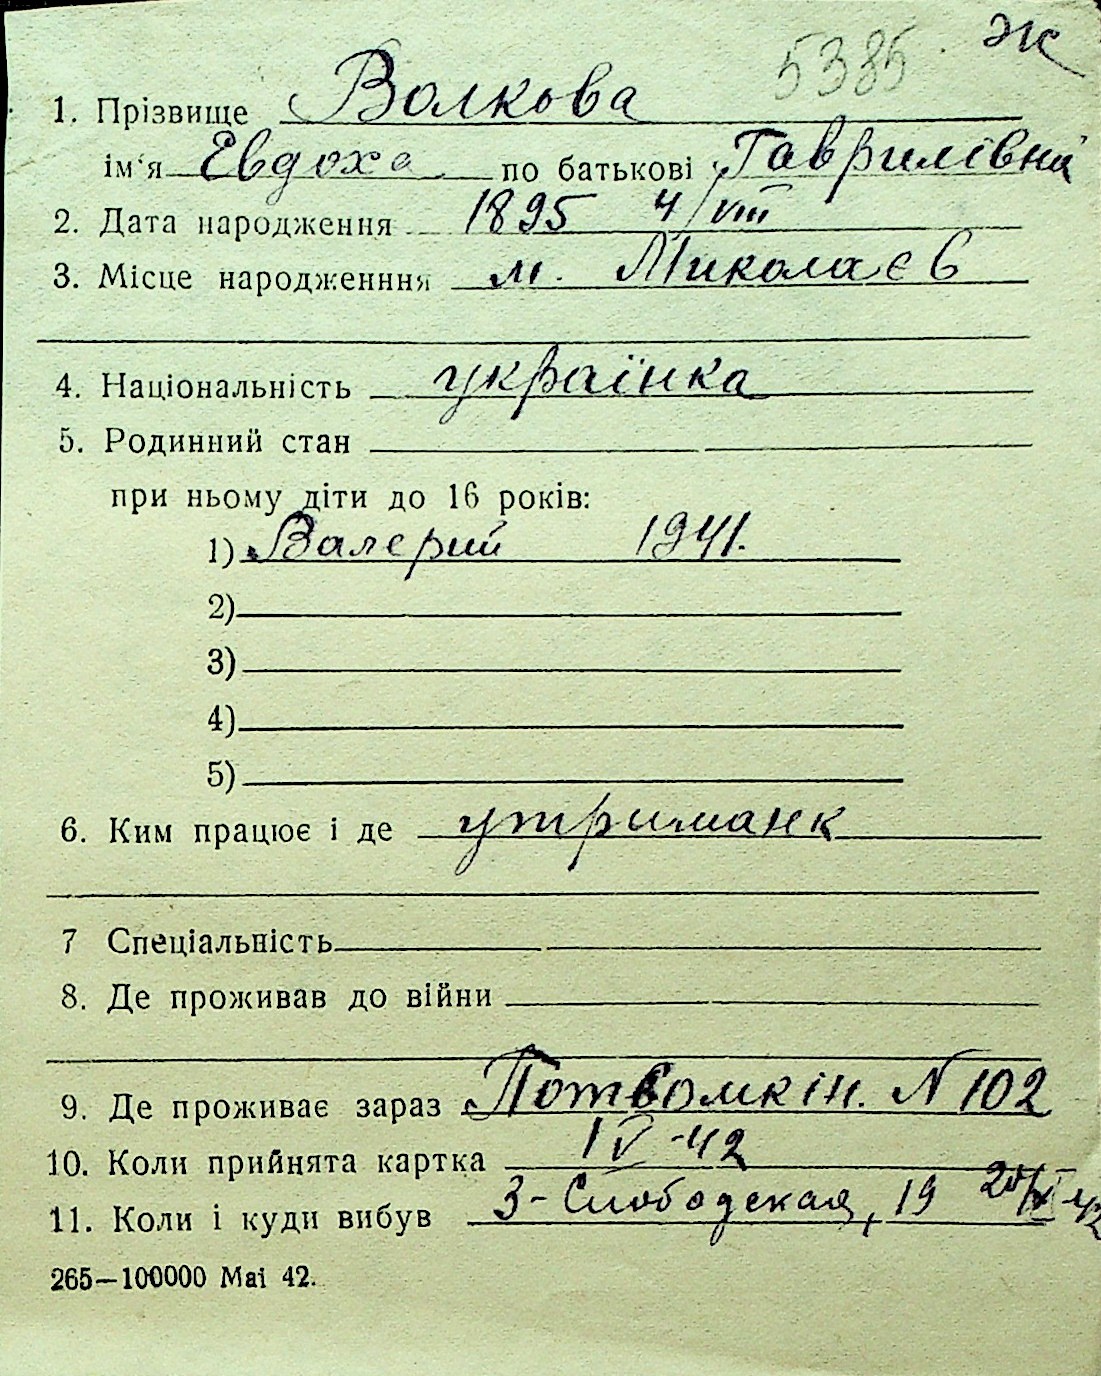 5385. Ж
1. Прізвище Волкова
ім'я Евдоха по батькові Гаврилівна
2. Дата народження 1895 4/VIII
3. Місце народженння м. Миколаєв
4. Національність українка
5. Родинний стан
при ньому діти до 16 років:
1) Валерий 1941.
2)
3)
4)
5)
6. Ким працює і де утриманк
7 Спеціальність
8. Де проживав до війни
9. Де проживає зараз Потьомкін. N 102
10. Коли прийнята картка IV-42
11. Коли і куди вибув 3-Слободская, 19
265—100000 Mai 42.